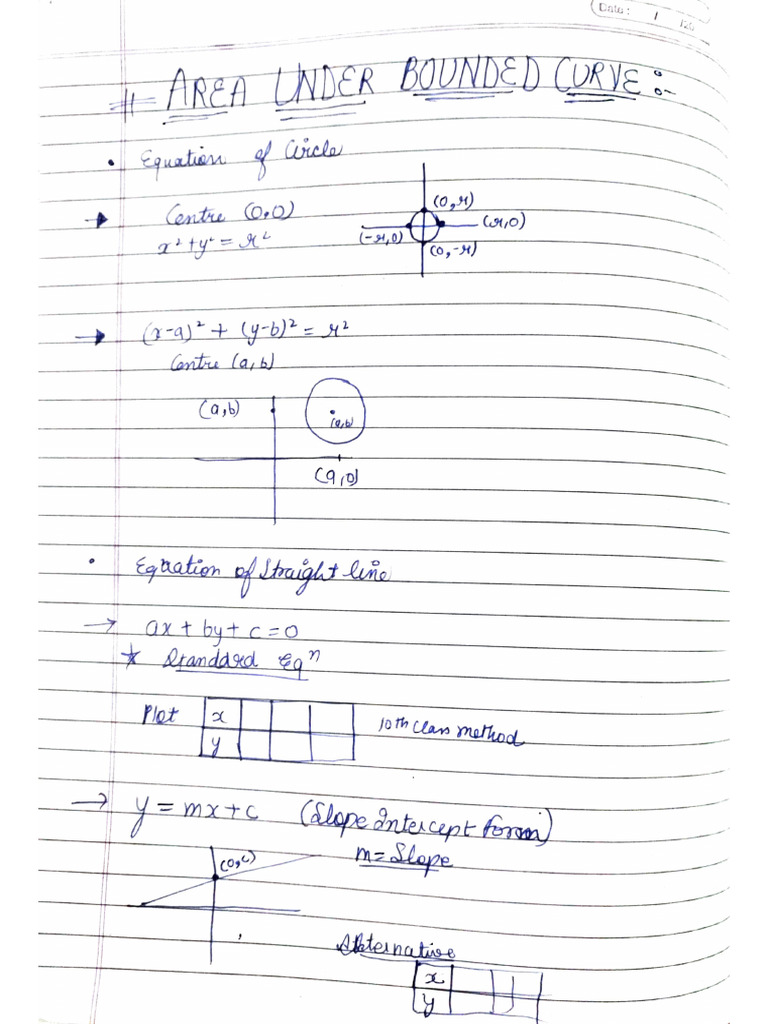 Date: / /20
# AREA UNDER BOUNDED CURVE :-
• Equation of Circle
→ Centre (0,0)
x² + y² = r²
(0, r)
(r, 0)
(-r, 0)
(0, -r)
→ (x-a)² + (y-b)² = r²
Centre (a, b)
(a, b)
(a, b)
(a, 0)
• Equation of Straight line
→ ax + by + c = 0
★ Standard Eqⁿ
Plot x y 10th Class method
→ y = mx + c (Slope intercept form)
(0, c)
m = Slope
Alternative
x
y